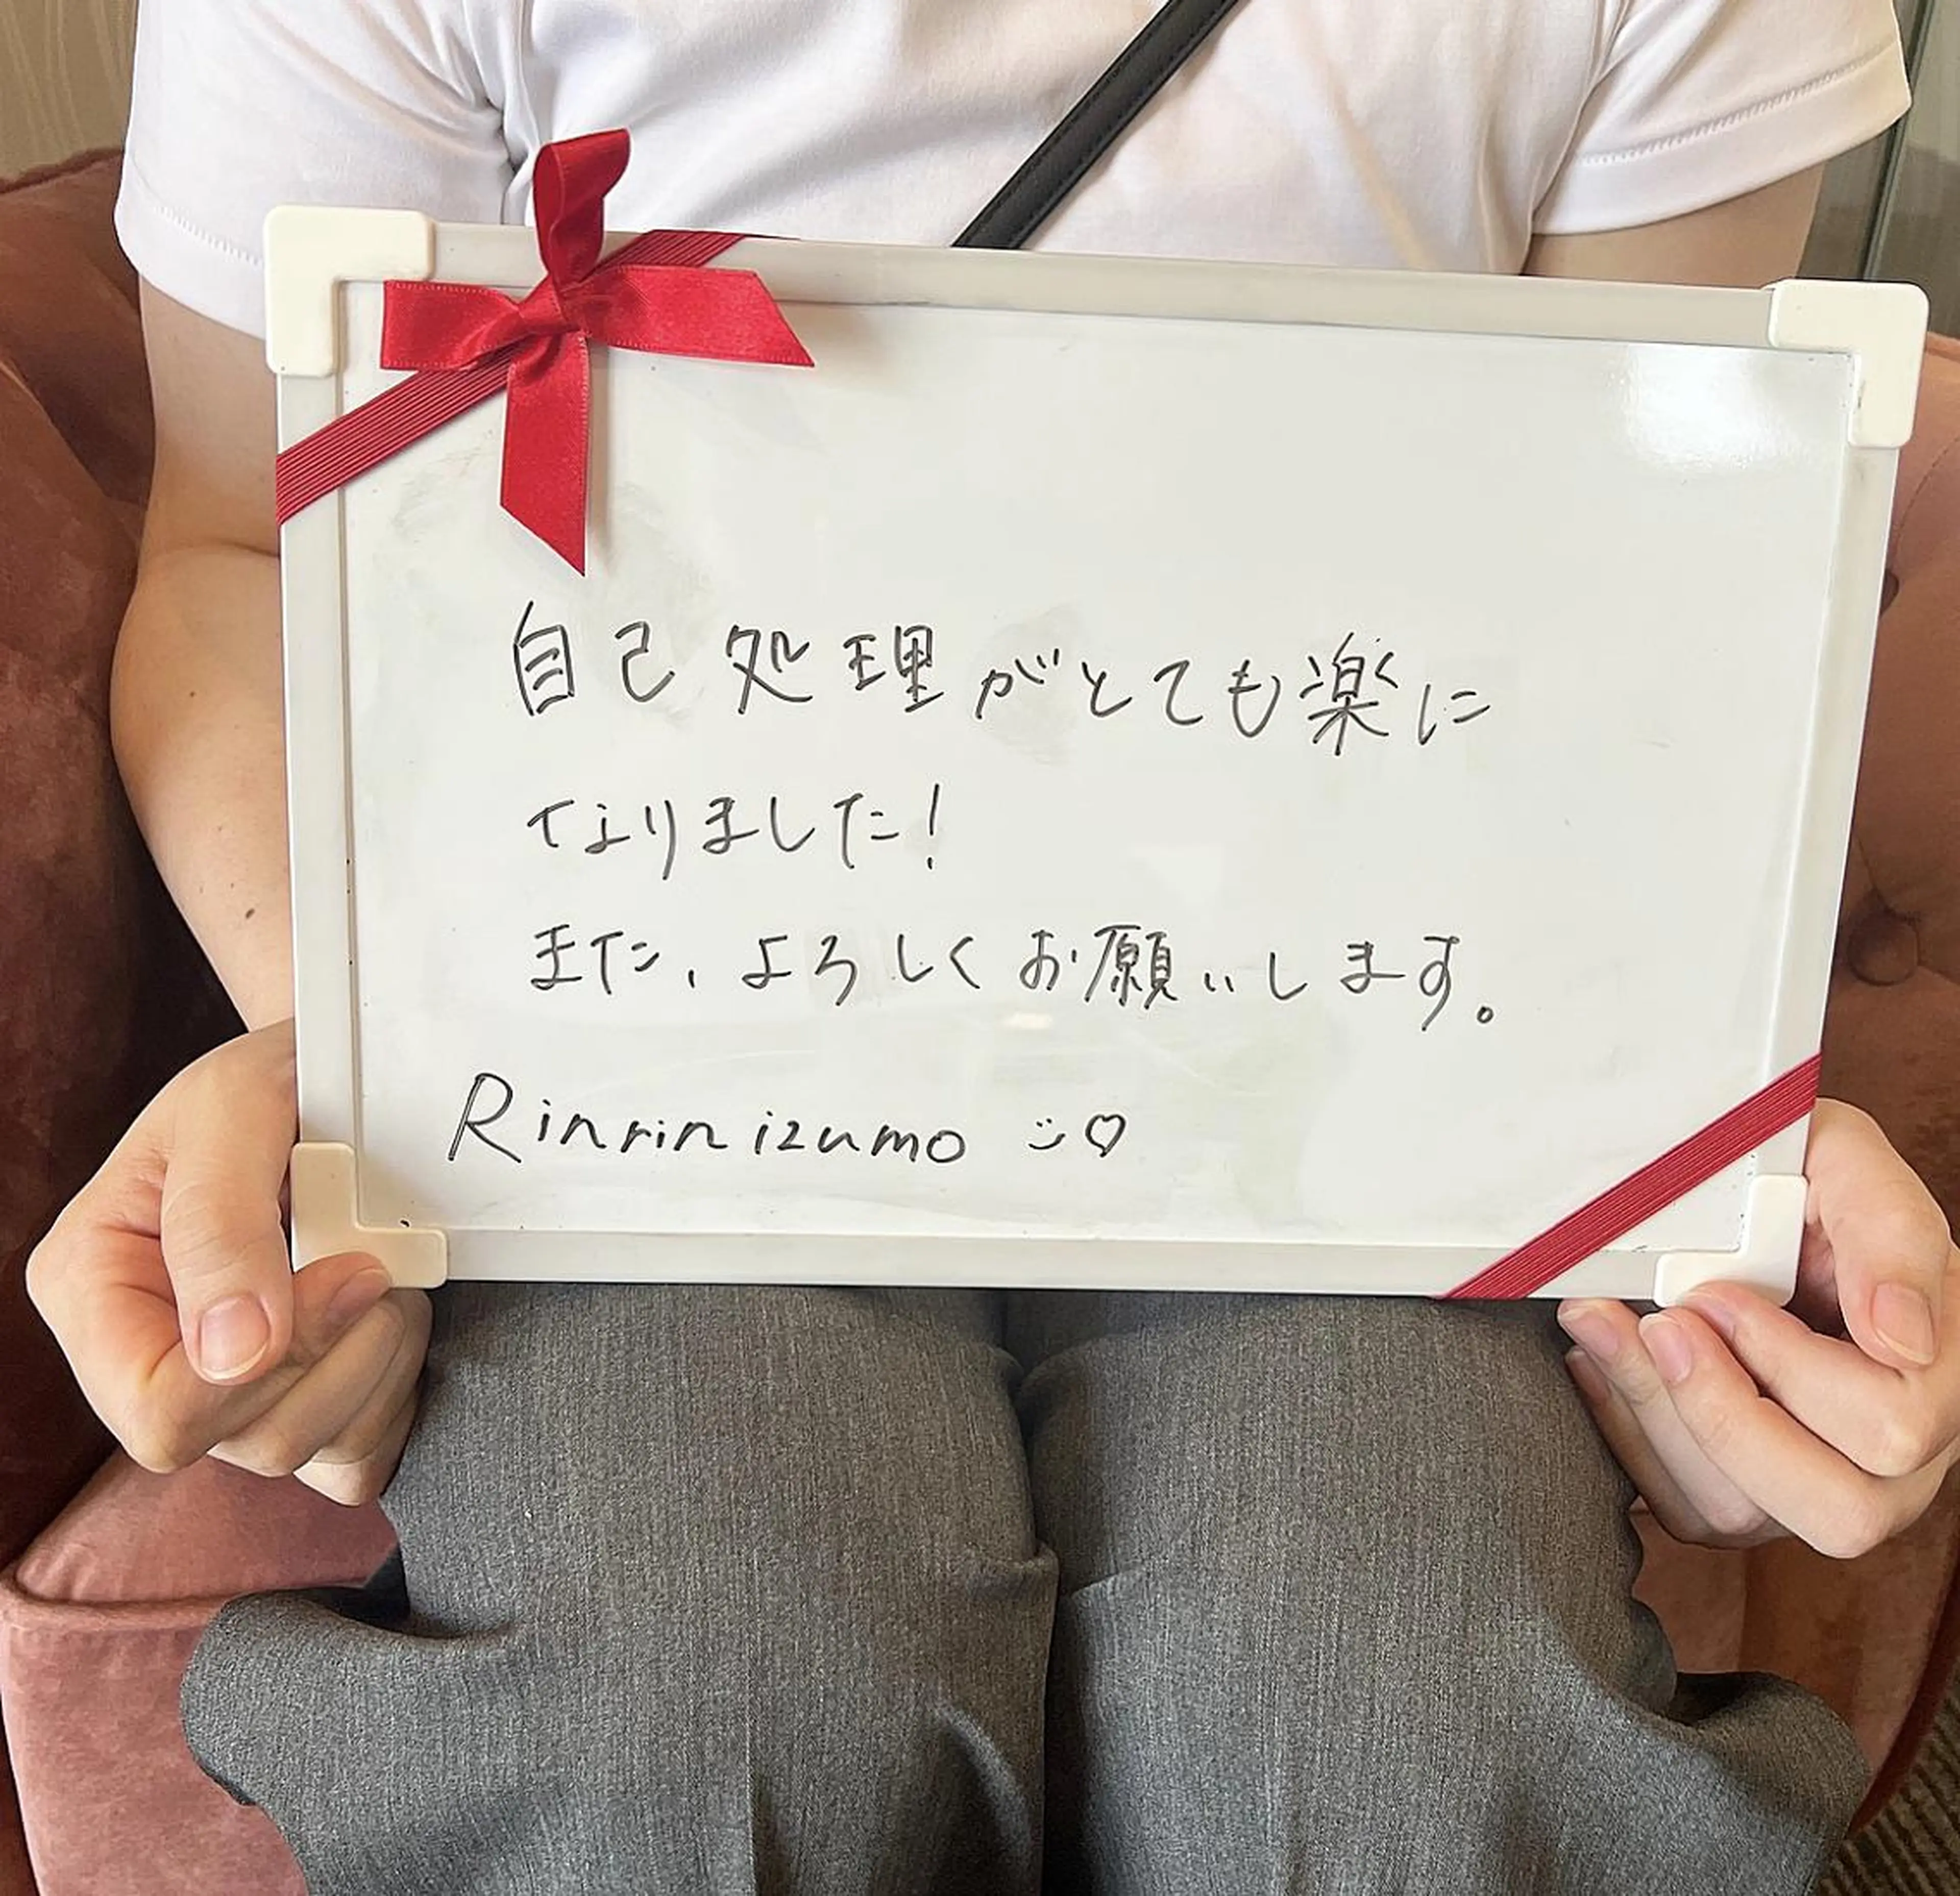 自己処理がとても楽に
なりました!
また、よろしくお願いします。
Rinrin izumo ♡